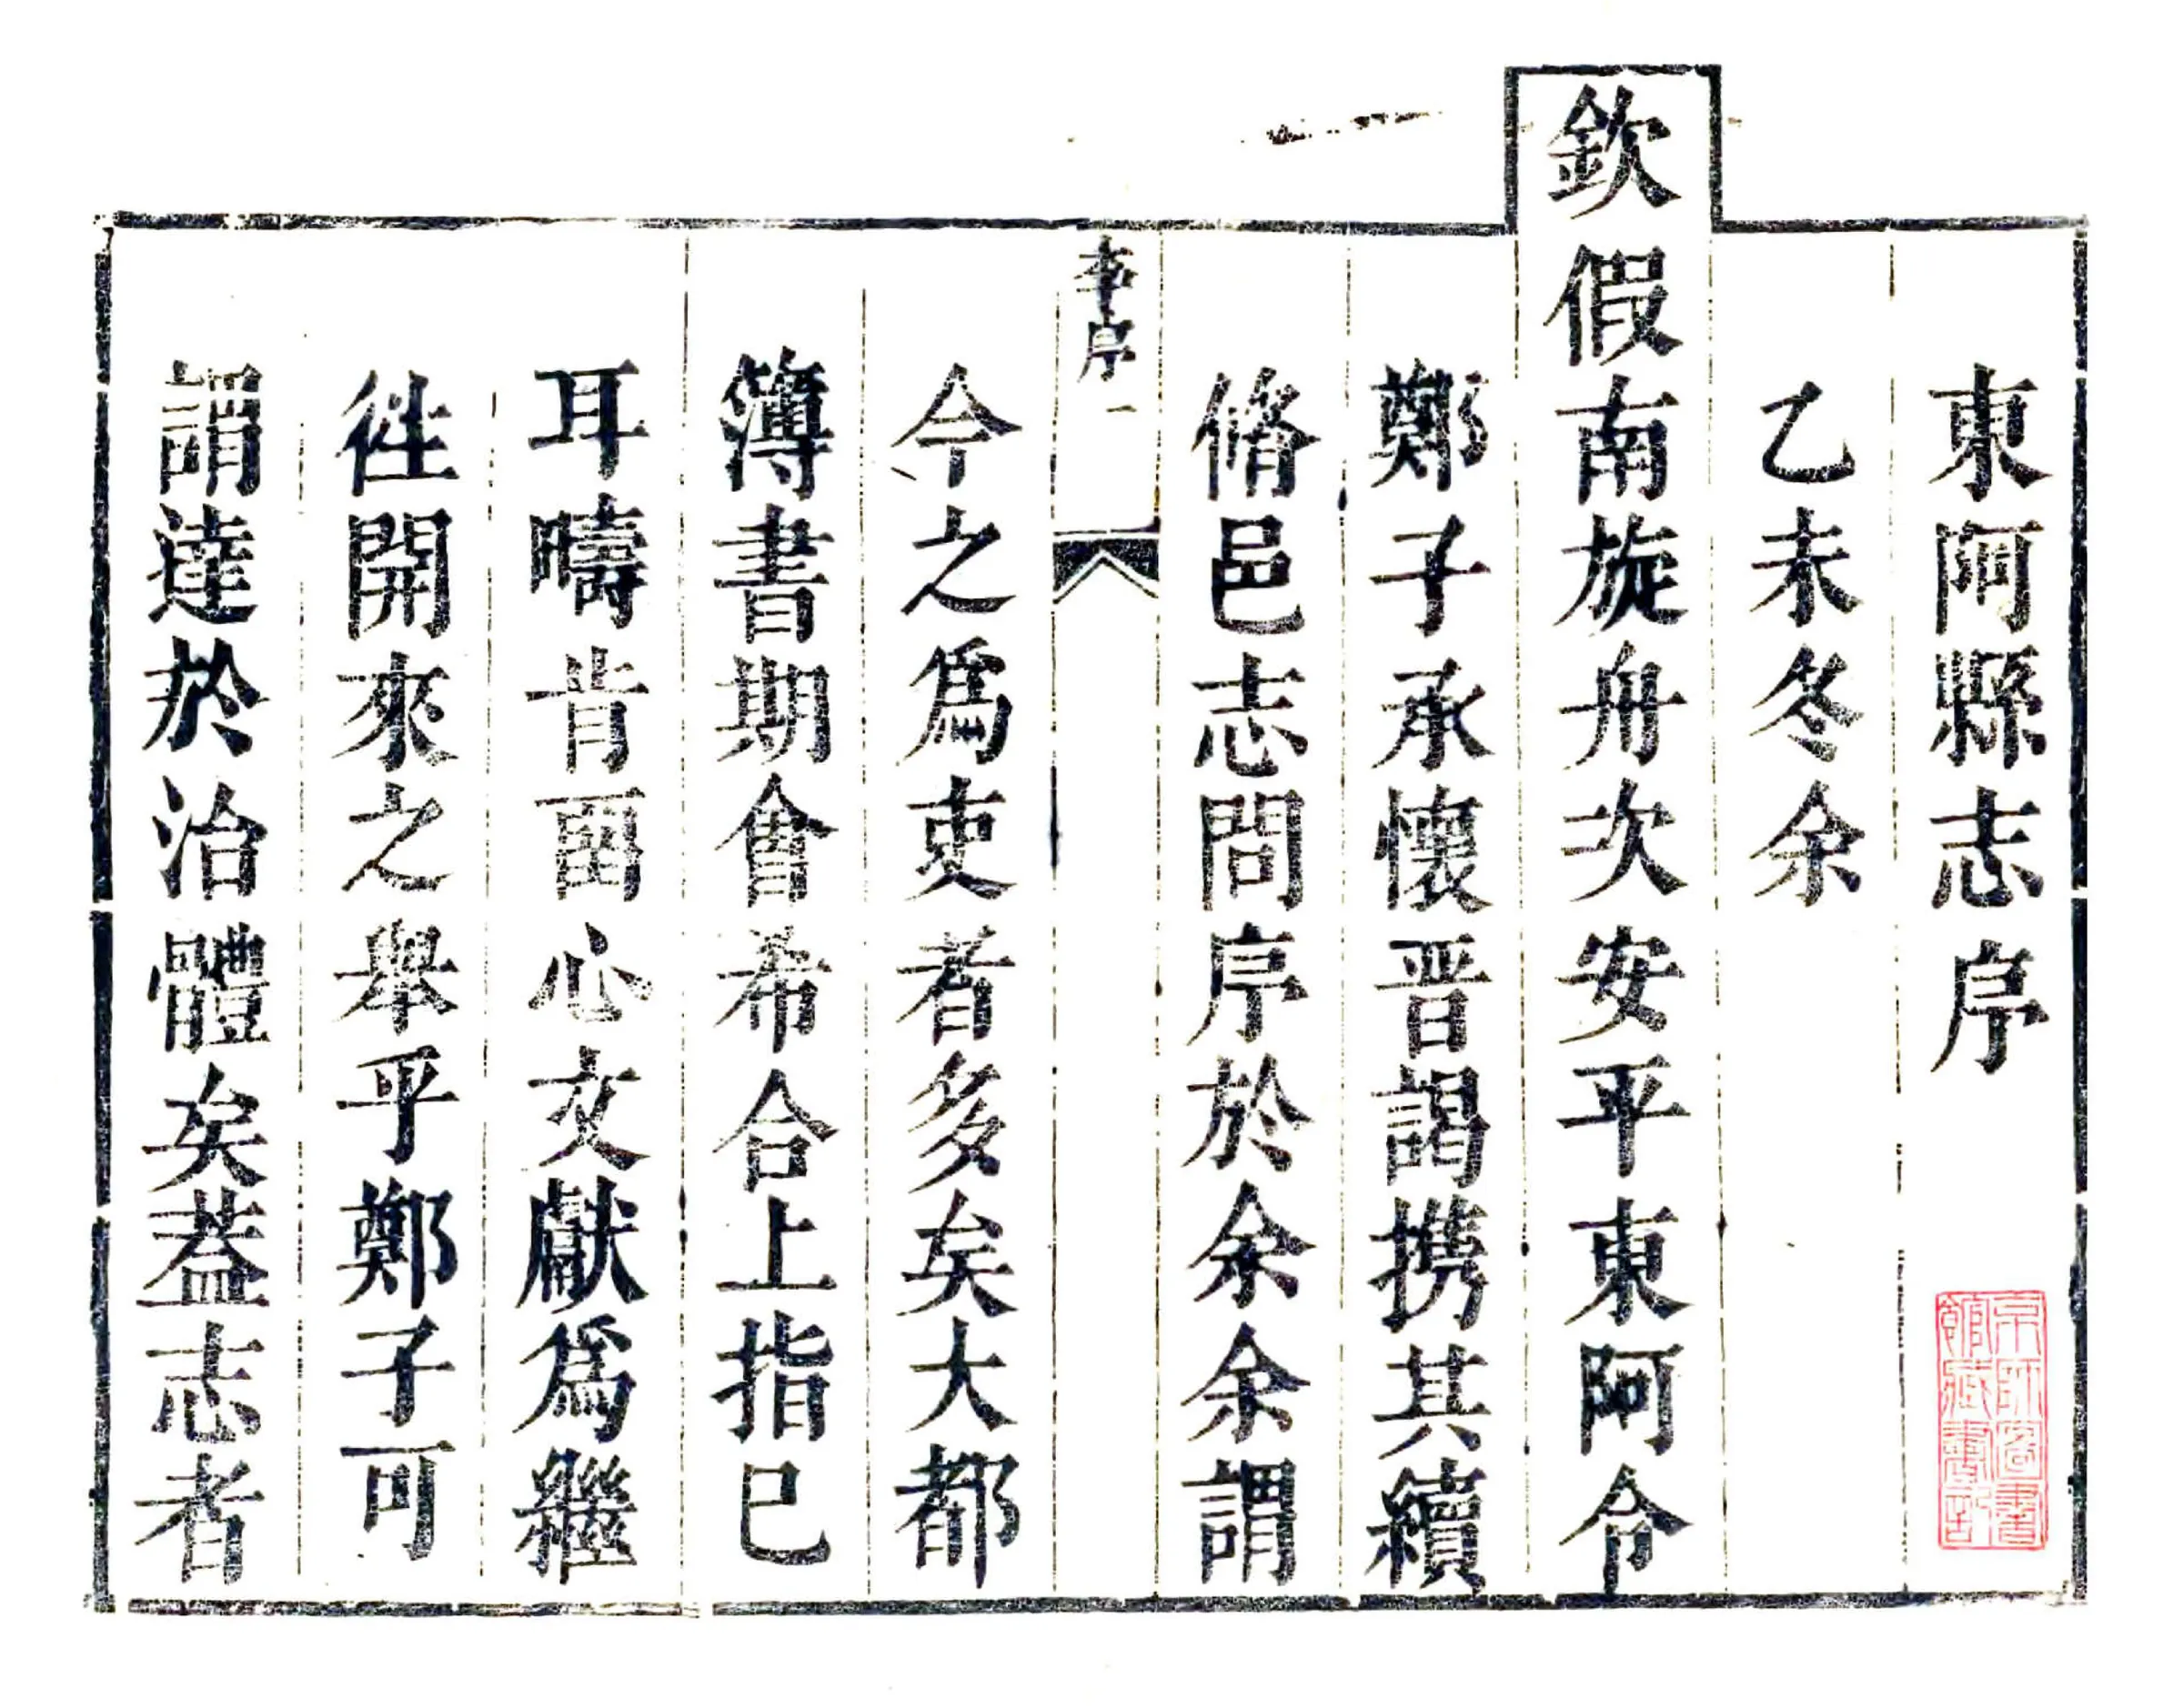 東阿縣志序
乙未冬余
欽假南旋舟次安平東阿令
鄭子承懷晋謁携其續
脩邑志問序於余余謂
李序 一
今之爲吏者多矣大都
簿書期會希合上指已
耳疇肯畱心文獻爲繼
徃開來之舉乎鄭子可
謂達於治體矣葢志者
京師圖書
館藏書記